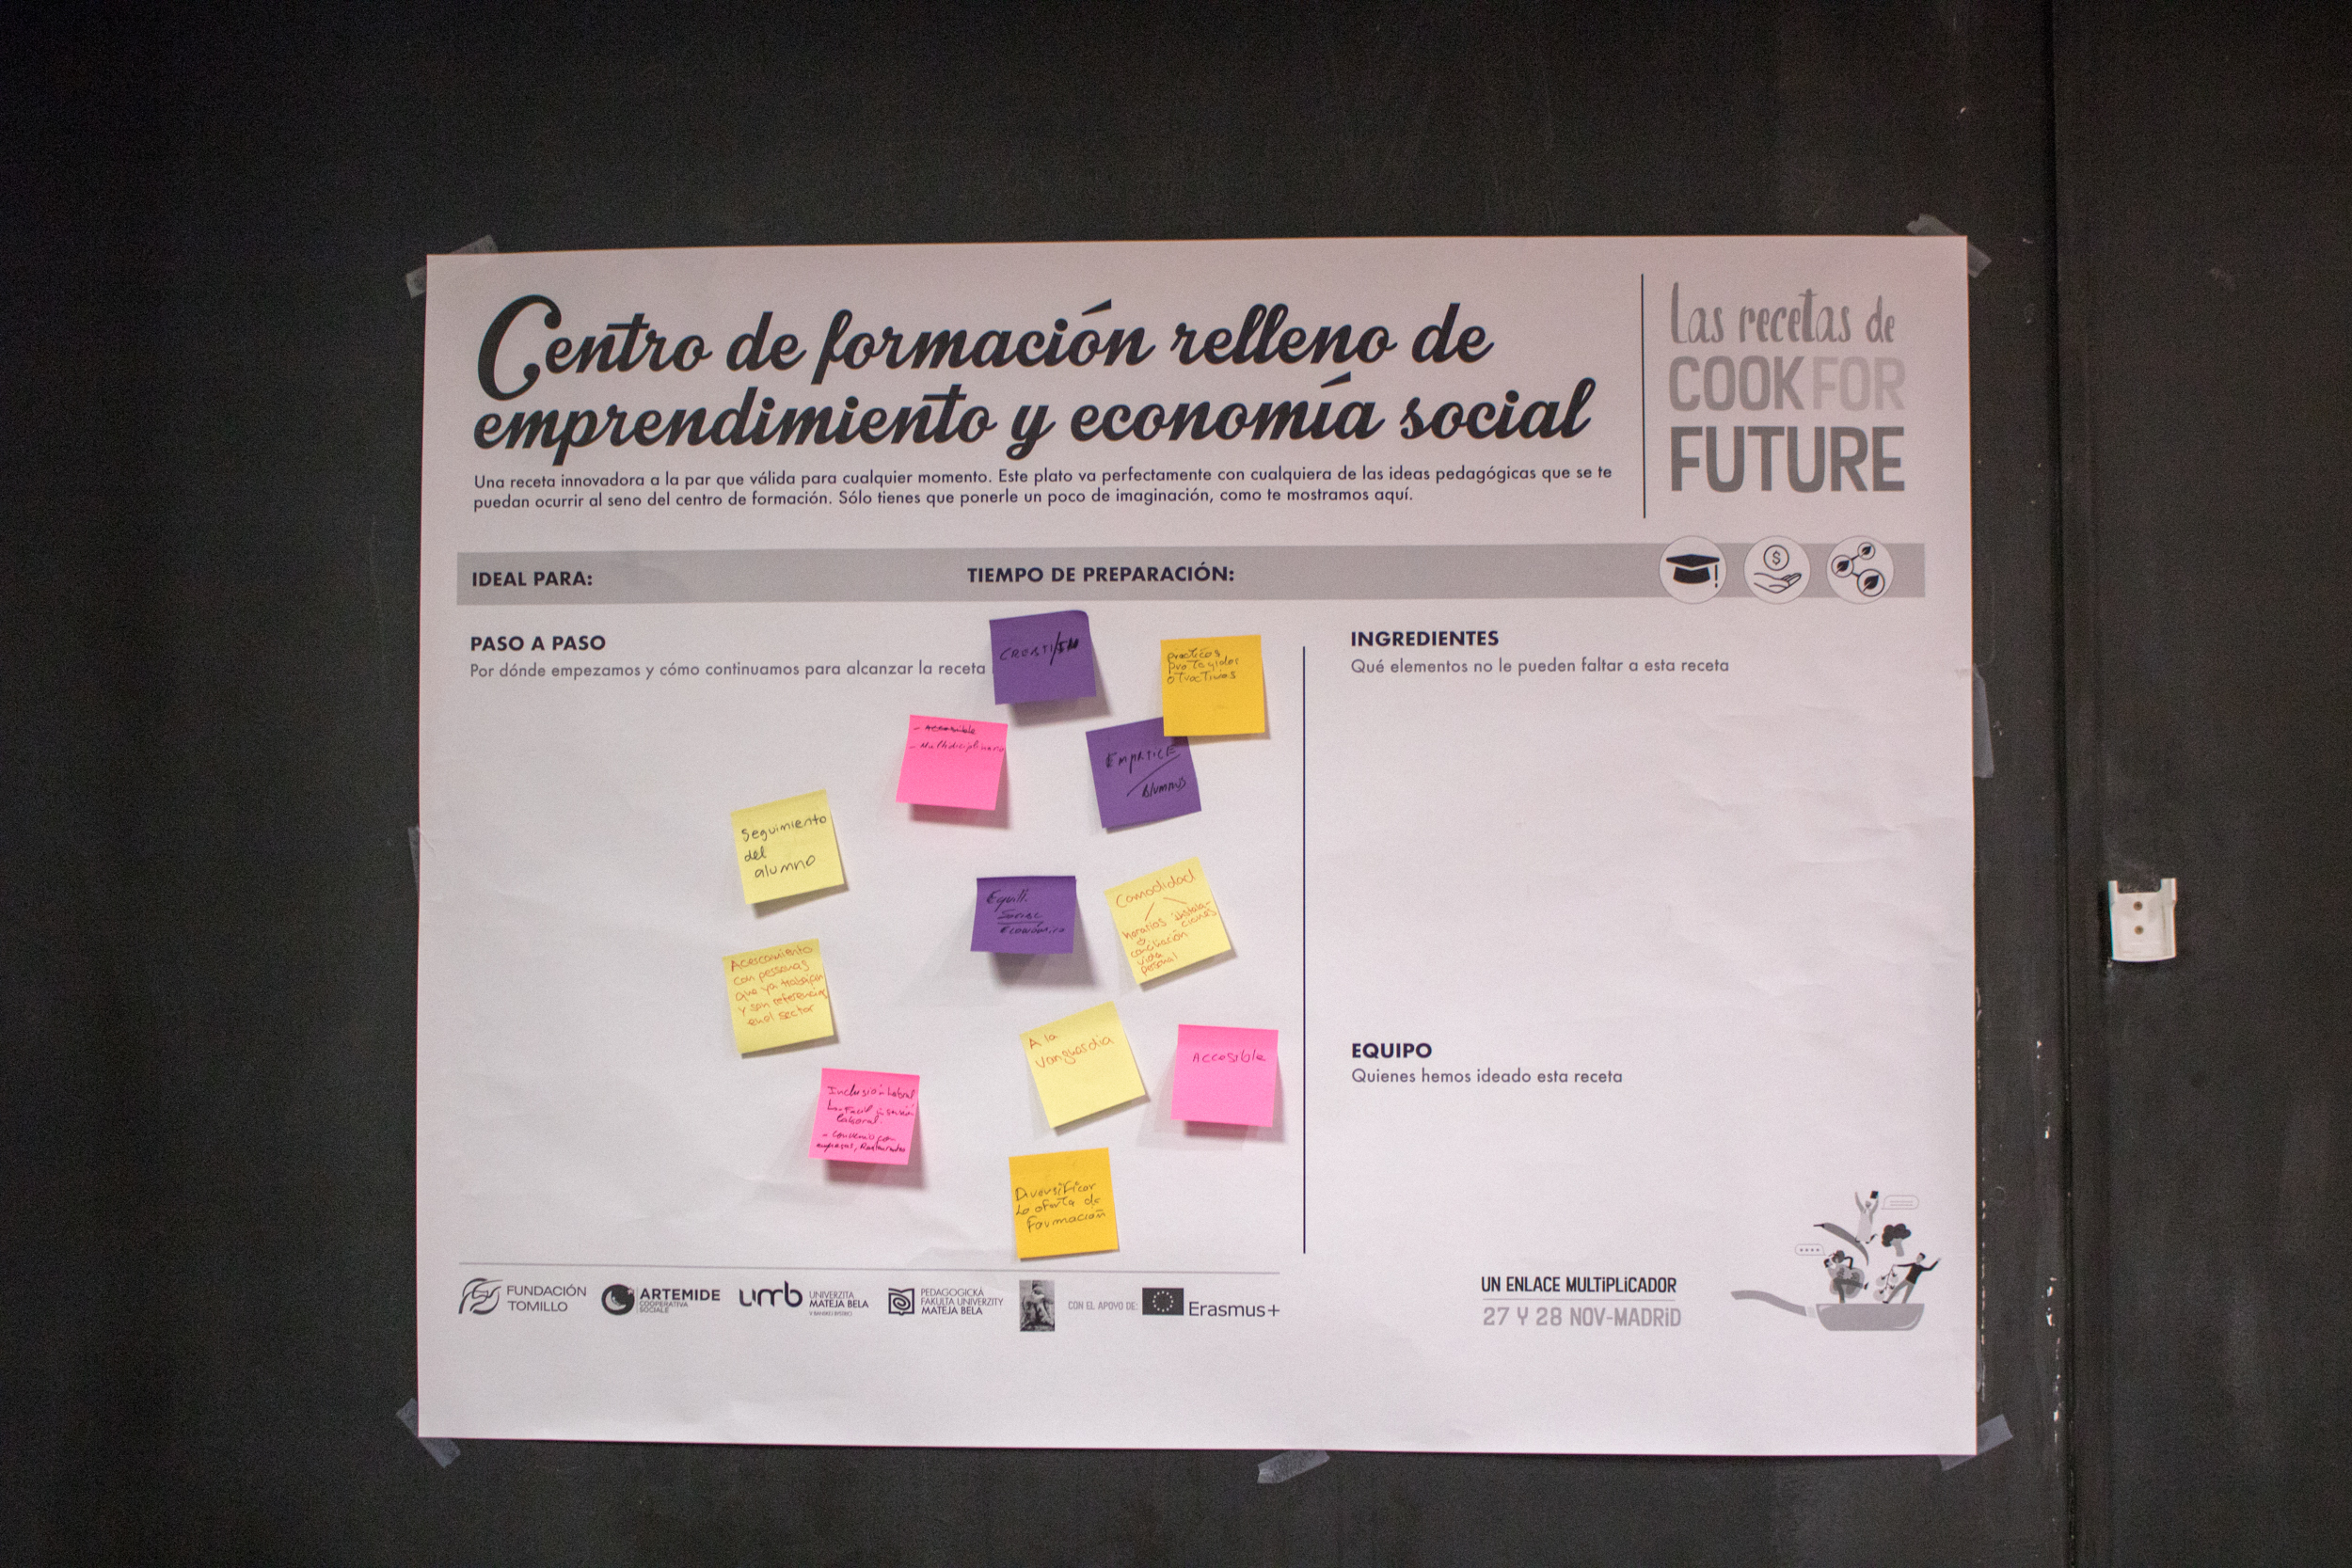 Centro de formación relleno de
emprendimiento y economía social
Una receta innovadora a la par que válida para cualquier momento. Este plato va perfectamente con cualquiera de las ideas pedagógicas que se te
puedan ocurrir al seno del centro de formación. Sólo tienes que ponerle un poco de imaginación, como te mostramos aquí.
Las recetas de
COOK FOR
FUTURE
IDEAL PARA:
TIEMPO DE PREPARACIÓN:
PASO A PASO
Por dónde empezamos y cómo continuamos para alcanzar la receta
practicas
protegidas
atractivas
- Accesible
- Multidisciplinario
Alumnus
Seguimiento
del
alumno
Equili.
Social
Económico
Comodidad
horarios instala-
ciones
conciliación
vida
personal
Acercamiento
con personas
que ya trabajan
y son referencias
en el sector
A la
vanguardia
Accesible
Inclusión laboral
laboral.
- convenio con
empresas, Restaurantes
Diversificar
la oferta de
formación
INGREDIENTES
Qué elementos no le pueden faltar a esta receta
EQUIPO
Quienes hemos ideado esta receta
FUNDACIÓN
TOMILLO
ARTEMIDE
COOPERATIVA
SOCIALE
umb
UNIVERZITA
MATEJA BELA
PEDAGOGICKÁ
FAKULTA UNIVERZITY
MATEJA BELA
CON EL APOYO DE:
Erasmus+
UN ENLACE MULTiPLiCADOR
27 Y 28 NOV-MADRiD